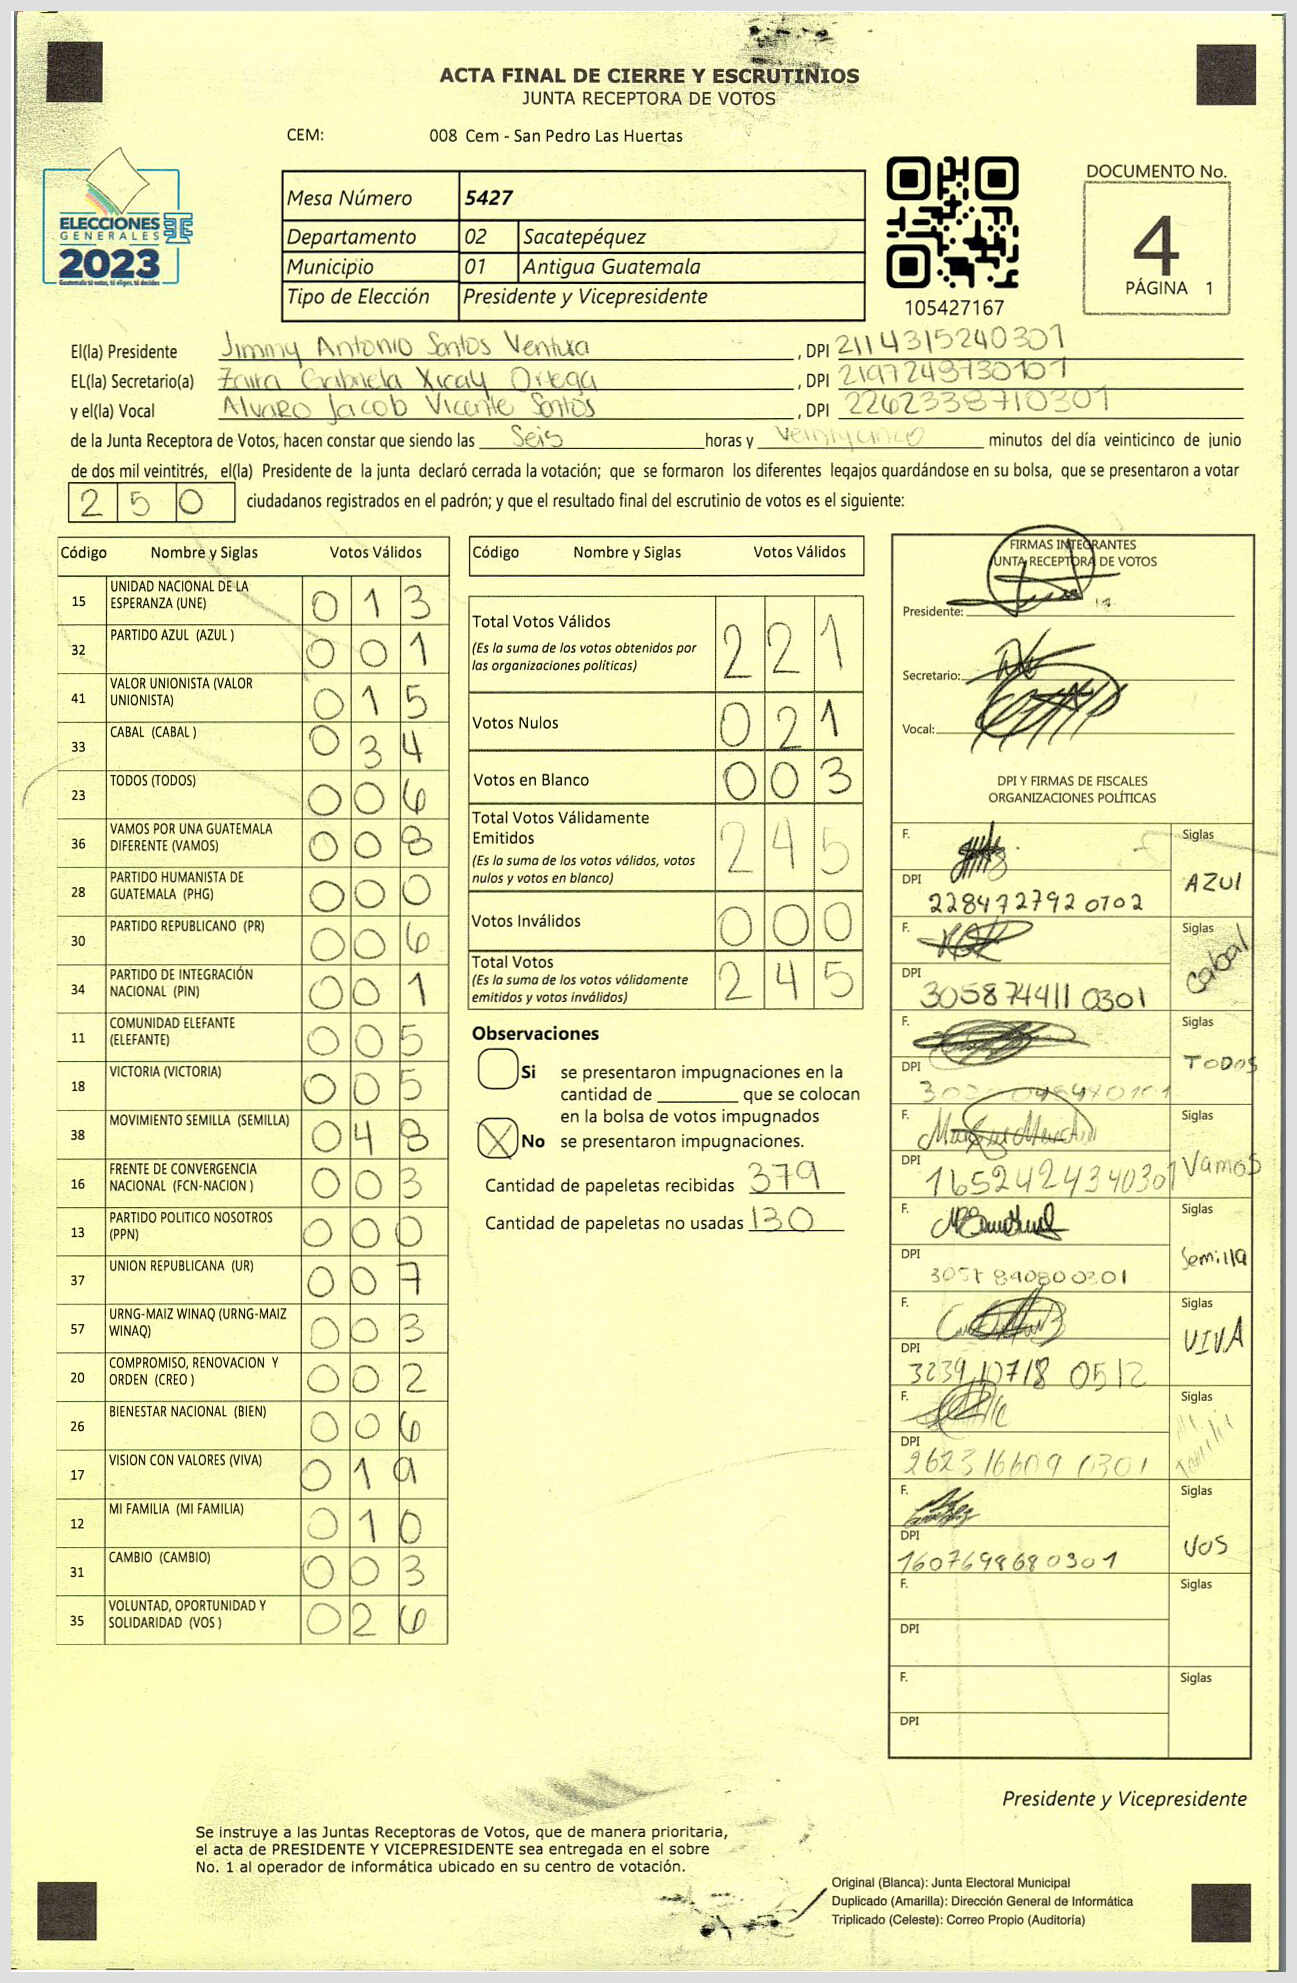 ACTA FINAL DE CIERRE Y ESCRUTINIOS
JUNTA RECEPTORA DE VOTOS
CEM: 008 Cem - San Pedro Las Huertas
ELECCIONES
GENERALES
2023
Guatemala tú votas, tú eliges, tú decides
Mesa Número 5427
Departamento 02 Sacatepéquez
Municipio 01 Antigua Guatemala
Tipo de Elección Presidente y Vicepresidente
105427167
DOCUMENTO No.
4
PÁGINA 1
El(la) Presidente Jimmy Antonio Santos Ventura, DPI 2114315240301
EL(la) Secretario(a) Zaira Gabriela Xicay Ortega, DPI 2197243730101
y el(la) Vocal Alvaro Jacob Vicente Santos, DPI 2262338710301
de la Junta Receptora de Votos, hacen constar que siendo las Seis horas y veinticinco minutos del día veinticinco de junio
de dos mil veintitrés, el(la) Presidente de la junta declaró cerrada la votación; que se formaron los diferentes legajos guardándose en su bolsa, que se presentaron a votar
250 ciudadanos registrados en el padrón; y que el resultado final del escrutinio de votos es el siguiente:
Código Nombre y Siglas Votos Válidos
15 UNIDAD NACIONAL DE LA ESPERANZA (UNE) 013
32 PARTIDO AZUL (AZUL ) 001
41 VALOR UNIONISTA (VALOR UNIONISTA) 015
33 CABAL (CABAL ) 034
23 TODOS (TODOS) 006
36 VAMOS POR UNA GUATEMALA DIFERENTE (VAMOS) 008
28 PARTIDO HUMANISTA DE GUATEMALA (PHG) 000
30 PARTIDO REPUBLICANO (PR) 006
34 PARTIDO DE INTEGRACIÓN NACIONAL (PIN) 001
11 COMUNIDAD ELEFANTE (ELEFANTE) 005
18 VICTORIA (VICTORIA) 005
38 MOVIMIENTO SEMILLA (SEMILLA) 048
16 FRENTE DE CONVERGENCIA NACIONAL (FCN-NACION ) 003
13 PARTIDO POLITICO NOSOTROS (PPN) 000
37 UNION REPUBLICANA (UR) 007
57 URNG-MAIZ WINAQ (URNG-MAIZ WINAQ) 003
20 COMPROMISO, RENOVACION Y ORDEN (CREO ) 002
26 BIENESTAR NACIONAL (BIEN) 006
17 VISION CON VALORES (VIVA) 019
12 MI FAMILIA (MI FAMILIA) 010
31 CAMBIO (CAMBIO) 003
35 VOLUNTAD, OPORTUNIDAD Y SOLIDARIDAD (VOS ) 026
Código Nombre y Siglas Votos Válidos
Total Votos Válidos 221
(Es la suma de los votos obtenidos por
las organizaciones políticas)
Votos Nulos 021
Votos en Blanco 003
Total Votos Válidamente
Emitidos 245
(Es la suma de los votos válidos, votos
nulos y votos en blanco)
Votos Inválidos 000
Total Votos 245
(Es la suma de los votos válidamente
emitidos y votos inválidos)
Observaciones
Si se presentaron impugnaciones en la
cantidad de ________ que se colocan
en la bolsa de votos impugnados
X No se presentaron impugnaciones.
Cantidad de papeletas recibidas 379
Cantidad de papeletas no usadas 130
FIRMAS INTEGRANTES
JUNTA RECEPTORA DE VOTOS
Presidente:
Secretario:
Vocal:
DPI Y FIRMAS DE FISCALES
ORGANIZACIONES POLÍTICAS
F. Siglas AZUL
DPI 2284727920702
F. Siglas Cabal
DPI 3058744110301
F. Siglas TODOS
DPI
F. Siglas Vamos
DPI 1652424340301
F. Siglas Semilla
DPI
F. Siglas VIVA
DPI 3239107180512
F. Siglas
DPI 2623166090301
F. Siglas VOS
DPI 1607698680301
F. Siglas
DPI
F. Siglas
DPI
Presidente y Vicepresidente
Se instruye a las Juntas Receptoras de Votos, que de manera prioritaria,
el acta de PRESIDENTE Y VICEPRESIDENTE sea entregada en el sobre
No. 1 al operador de informática ubicado en su centro de votación.
Original (Blanca): Junta Electoral Municipal
Duplicado (Amarilla): Dirección General de Informática
Triplicado (Celeste): Correo Propio (Auditoría)